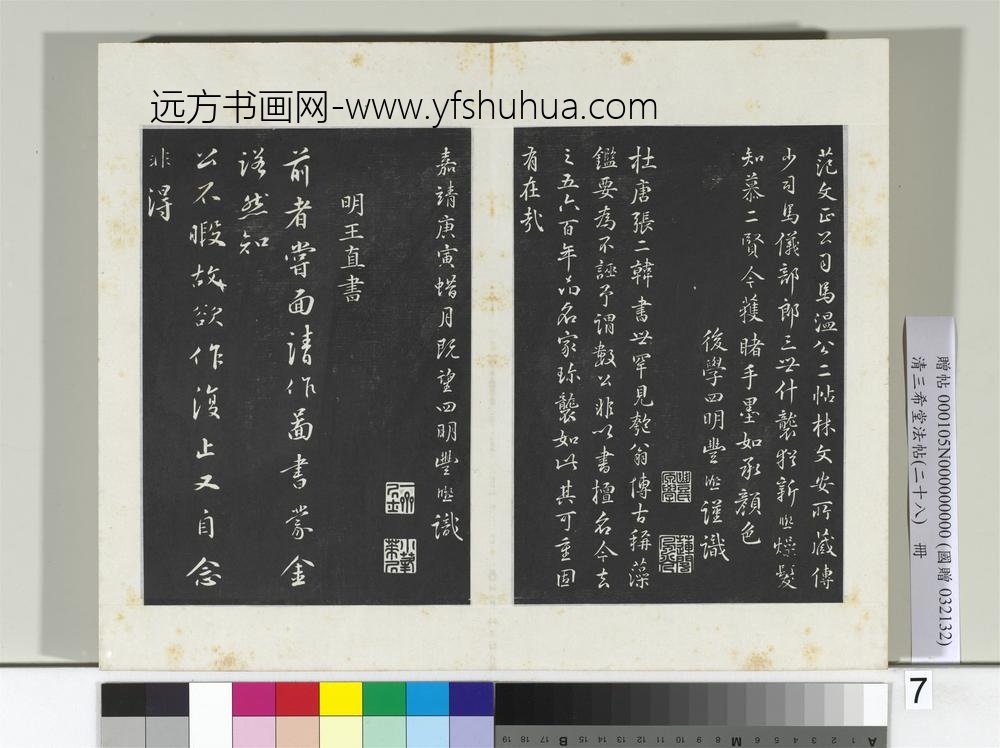 远方书画网-www.yfshuhua.com
范文正公司馬温公二帖林文安所藏傳
少司馬儀部郎三世什襲猶新熙燥髮
知慕二賢今獲睹手墨如承顏色
後學四明豐熙謹識
杜唐張二韓書世罕見匏翁傳古稱藻
鑑要為不誣予謂數公非以書擅名今去
之五六百年而名家珍襲如此其可重固
有在哉
嘉靖庚寅蜡月既望四明豐熙識
明王直書
前者嘗面請作圖書蒙金
諾然知
公不暇故欲作復止又自念
非得
贈帖 000105N000000000 (國贈 032132)
清三希堂法帖(二十八) 冊
7